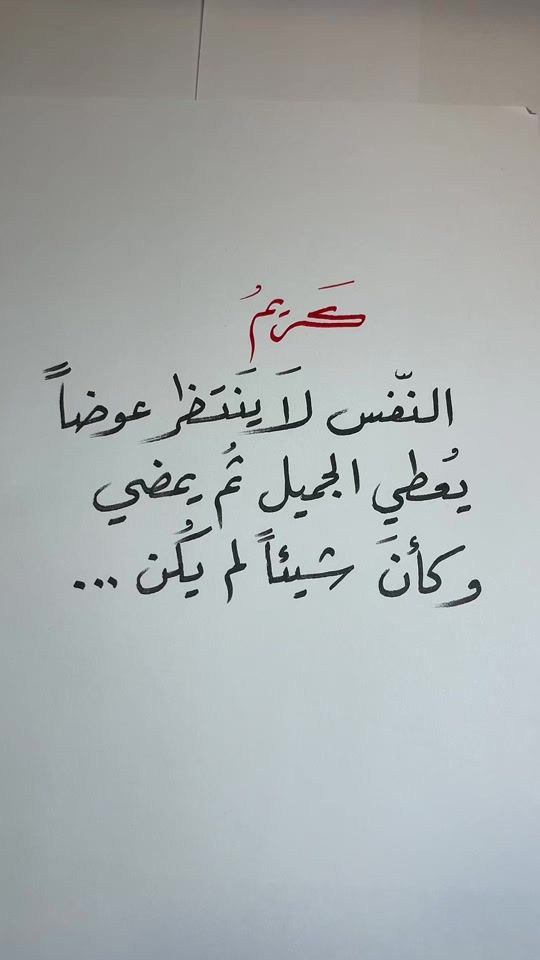 كَريمُ
النّفس لَا يَنَتَظر عوضاً
يُعطي الجميل ثُم يمضي
وكأنَ شيئاً لم يكُن ...